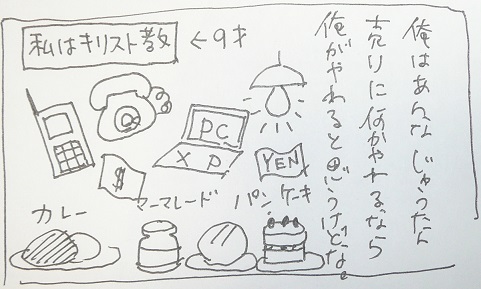 俺はあんなじゅうたん
売りに何かやれるなら
俺がやれると思うけどな。
私はキリスト教
←9才
PC
XP
$
YEN
カレー
マーマレード
パン
ケーキ